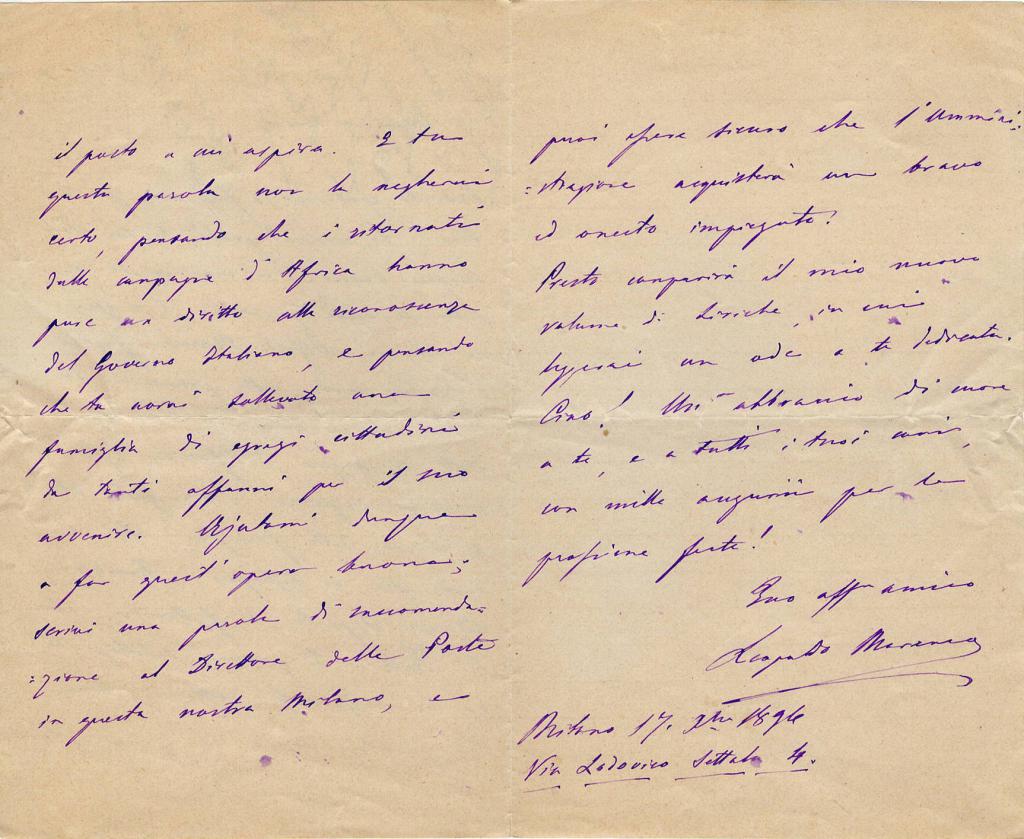 il posto a cui aspira. E tu
questa parola non la negherai
certo, pensando che i ritornati
dalle campagne d'Africa hanno
pure un diritto alla riconoscenza
del Governo Italiano, e pensando
che tu avrai sollevato una
famiglia di egregi cittadini
da tanti affanni per il suo
avvenire. Ajutami dunque
a far quest'opera buona;
scrivi una parola di raccomanda=
=zione al Direttore delle Poste
in questa nostra Milano, e
puoi essere sicuro che l'Ammini=
=strazione acquisterà un bravo
ed onesto impiegato!
Presto comparirà il mio nuovo
volume di liriche, in cui
leggerai un ode a te dedicata.
Ciao! Un abbraccio di cuore
a te, e a tutti i tuoi cari,
con mille augurii per le
prossime feste!
Tuo aff amico
Leopoldo Marenco
Milano 17. Xbre 1896
Via Lodovico Settala 4.